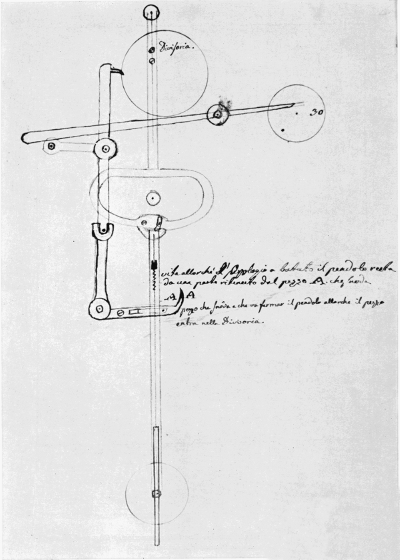 Divisoria.
30
vite allorchè l'Orologio a battuto il pendolo resta
da una parte ritenuto dal pezzo A. che
A A
pezzo che e che va fermar il pendolo allorche il pezzo
entra nella Divisoria.